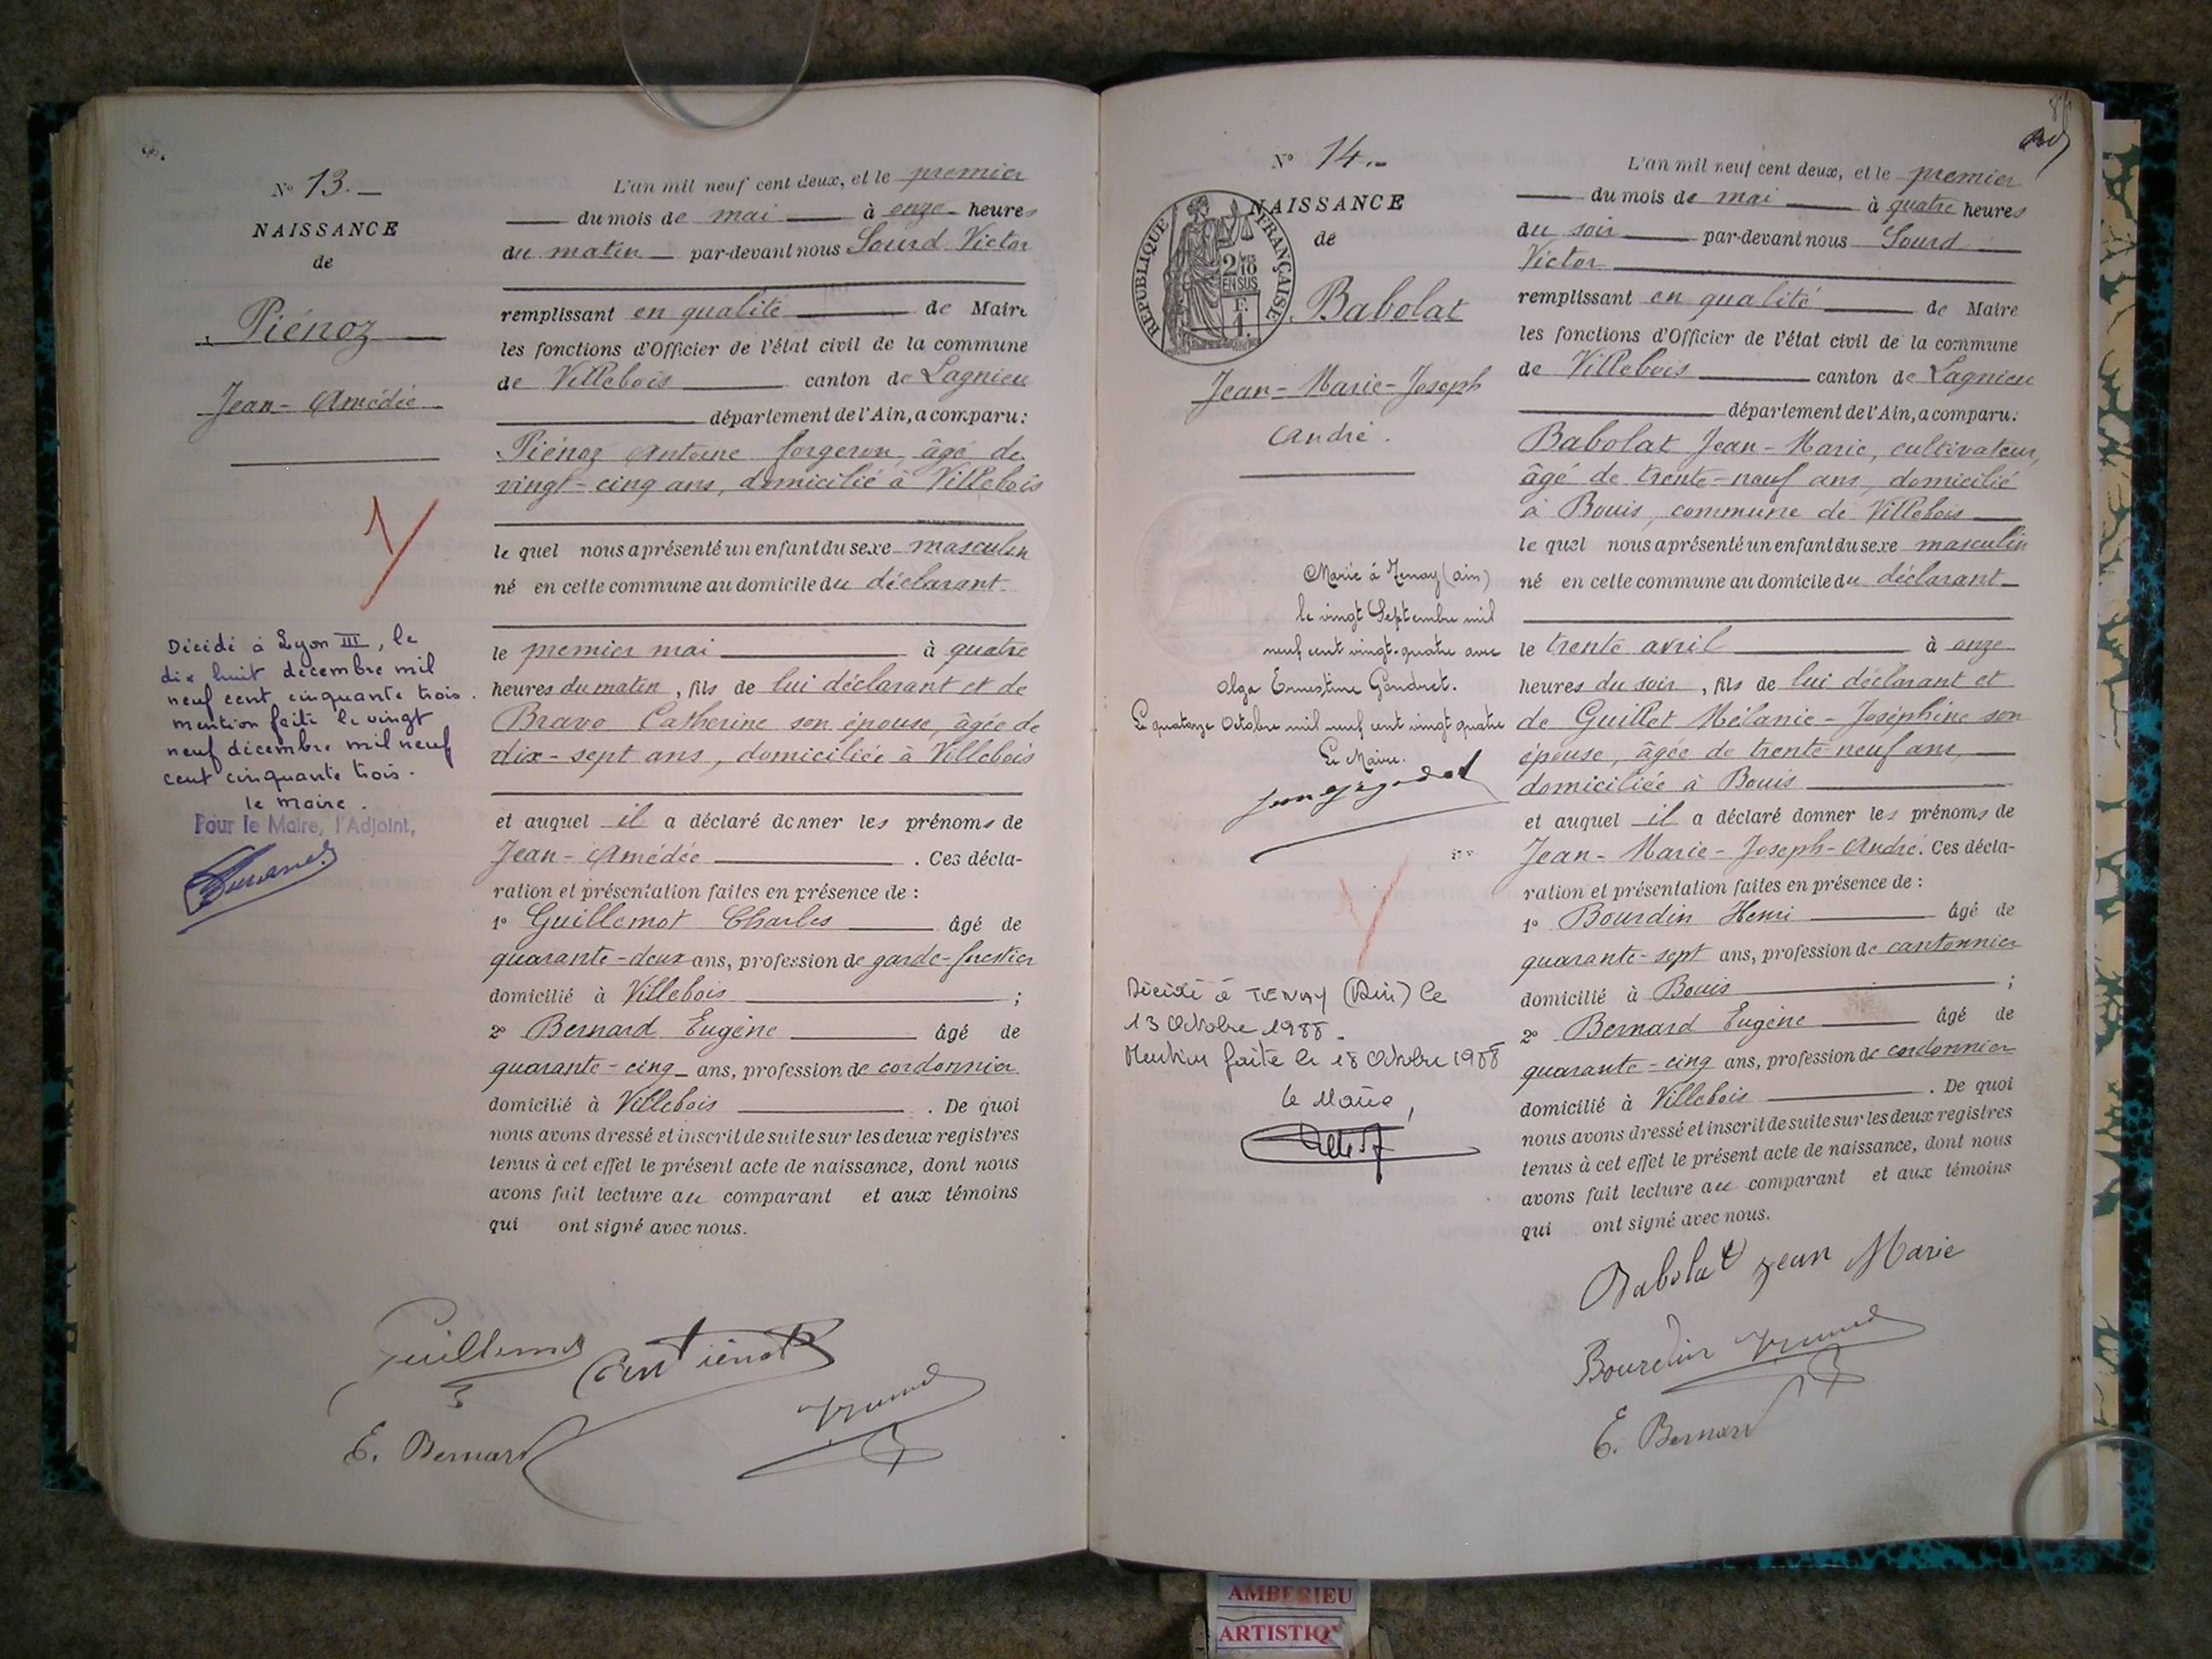 N° 13.
NAISSANCE
de
Piénoz
Jean-Amédée
Décédé à Lyon III, le
dix huit décembre mil
neuf cent cinquante trois.
mention faite le vingt
neuf décembre mil neuf
cent cinquante trois.
le maire.
Pour le Maire, l'Adjoint,
L'an mil neuf cent deux, et le premier
du mois de mai à onze heures
du matin par-devant nous Sourd Victor
remplissant en qualité de Maire
les fonctions d'Officier de l'état civil de la commune
de Villebois canton de Lagnieu
département de l'Ain, a comparu:
Piénoz Antoine forgeron, âgé de
vingt-cinq ans, domicilié à Villebois
le quel nous a présenté un enfant du sexe masculin
né en cette commune au domicile du déclarant
le premier mai à quatre
heures du matin, fils de lui déclarant et de
Bravo Catherine son épouse, âgée de
dix-sept ans, domiciliée à Villebois
et auquel il a déclaré donner les prénoms de
Jean-Amédée. Ces décla-
ration et présentation faites en présence de :
1° Guillemot Charles âgé de
quarante-deux ans, profession de garde-forestier
domicilié à Villebois ;
2° Bernard Eugène âgé de
quarante-cinq ans, profession de cordonnier
domicilié à Villebois. De quoi
nous avons dressé et inscrit de suite sur les deux registres
tenus à cet effet le présent acte de naissance, dont nous
avons fait lecture au comparant et aux témoins
qui ont signé avec nous.
E. Bernard
N° 14.
NAISSANCE
de
RÉPUBLIQUE FRANÇAISE
2/10
EN SUS
Babolat
Jean-Marie-Joseph
André.
Marié à Tenay (ain)
le vingt Septembre mil
neuf cent vingt-quatre avec
Olga Ernestine Gondret.
Le quatorze Octobre mil neuf cent vingt quatre
Le Maire.
Décédé à TENAY (Ain) le
13 Octobre 1988.
Mention faite le 18 Octobre 1988
le Maire,
L'an mil neuf cent deux, et le premier
du mois de mai à quatre heures
du soir par-devant nous Sourd
Victor
remplissant en qualité de Maire
les fonctions d'Officier de l'état civil de la commune
de Villebois canton de Lagnieu
département de l'Ain, a comparu:
Babolat Jean-Marie, cultivateur,
âgé de trente-neuf ans, domicilié
à Bouis, commune de Villebois
le quel nous a présenté un enfant du sexe masculin
né en cette commune au domicile du déclarant
le trente avril à onze
heures du soir, fils de lui déclarant et
de Guillet Mélanie-Joséphine son
épouse, âgée de trente-neuf ans,
domiciliée à Bouis
et auquel il a déclaré donner les prénoms de
Jean-Marie-Joseph-André. Ces décla-
ration et présentation faites en présence de :
1° Bourdin Henri âgé de
quarante-sept ans, profession de cantonnier
domicilié à Bouis ;
2° Bernard Eugène âgé de
quarante-cinq ans, profession de cordonnier
domicilié à Villebois. De quoi
nous avons dressé et inscrit de suite sur les deux registres
tenus à cet effet le présent acte de naissance, dont nous
avons fait lecture au comparant et aux témoins
qui ont signé avec nous.
Babolat Jean Marie
Bourdin
E. Bernard
AMBERIEU
ARTISTIQ